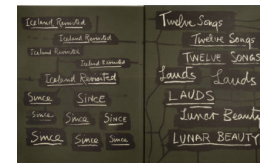 Iceland Revisited
Iceland Revisited
Iceland Revisited
Iceland Revisited
Iceland Revisited
Since Since
Since Since Since
Since Since Since
Twelve Songs
Twelve Songs
TWELVE SONGS
Lauds Lauds
LAUDS
Lunar Beauty
LUNAR BEAUTY